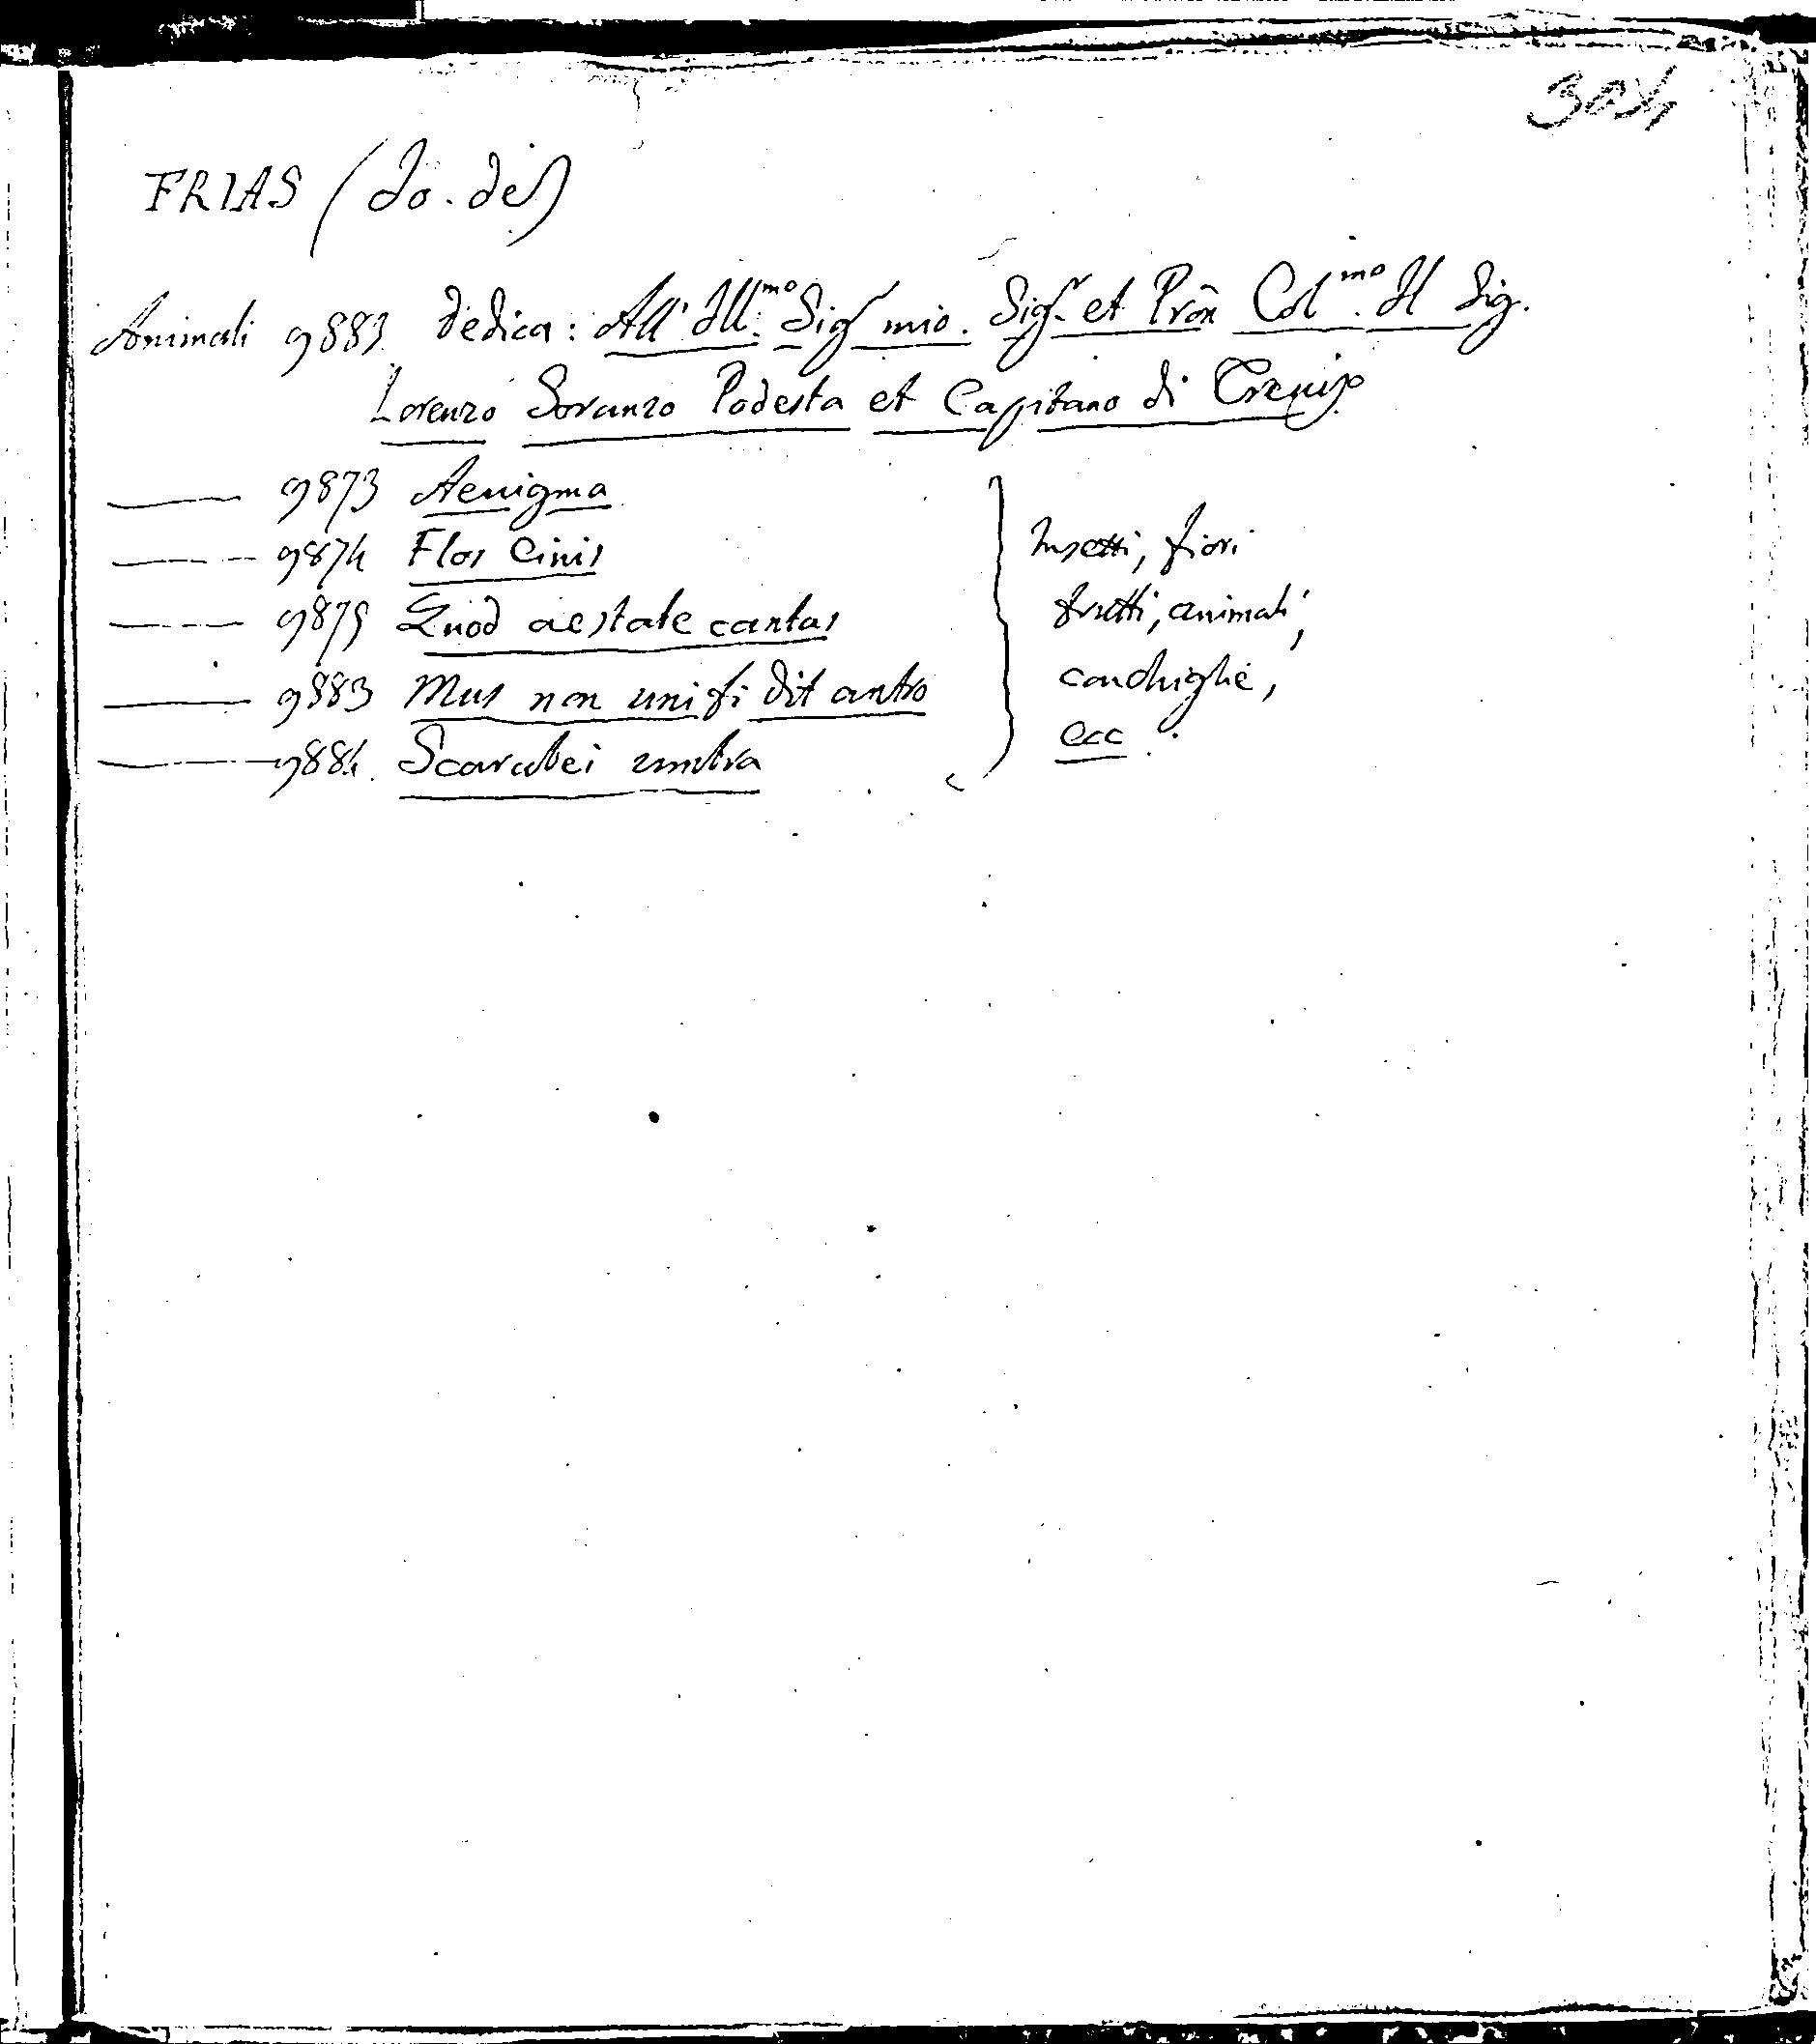 304
FRIAS (Jo. de)
Animali 9883 Dedica: All' Ill.mo Sigr mio. Sigr et Prõn Col.mo Il Sig.
Lorenzo Soranzo Podesta et Capitano di Treviso
—— 9873 Aenigma
—— 9874 Flos Cinis
—— 9879 Quod aestate cantas
—— 9883 Mus non uni fi dit antro
—— 9884. Scarabei umbra
Insetti, fiori
frutti, animali,
conchiglie,
ecc.